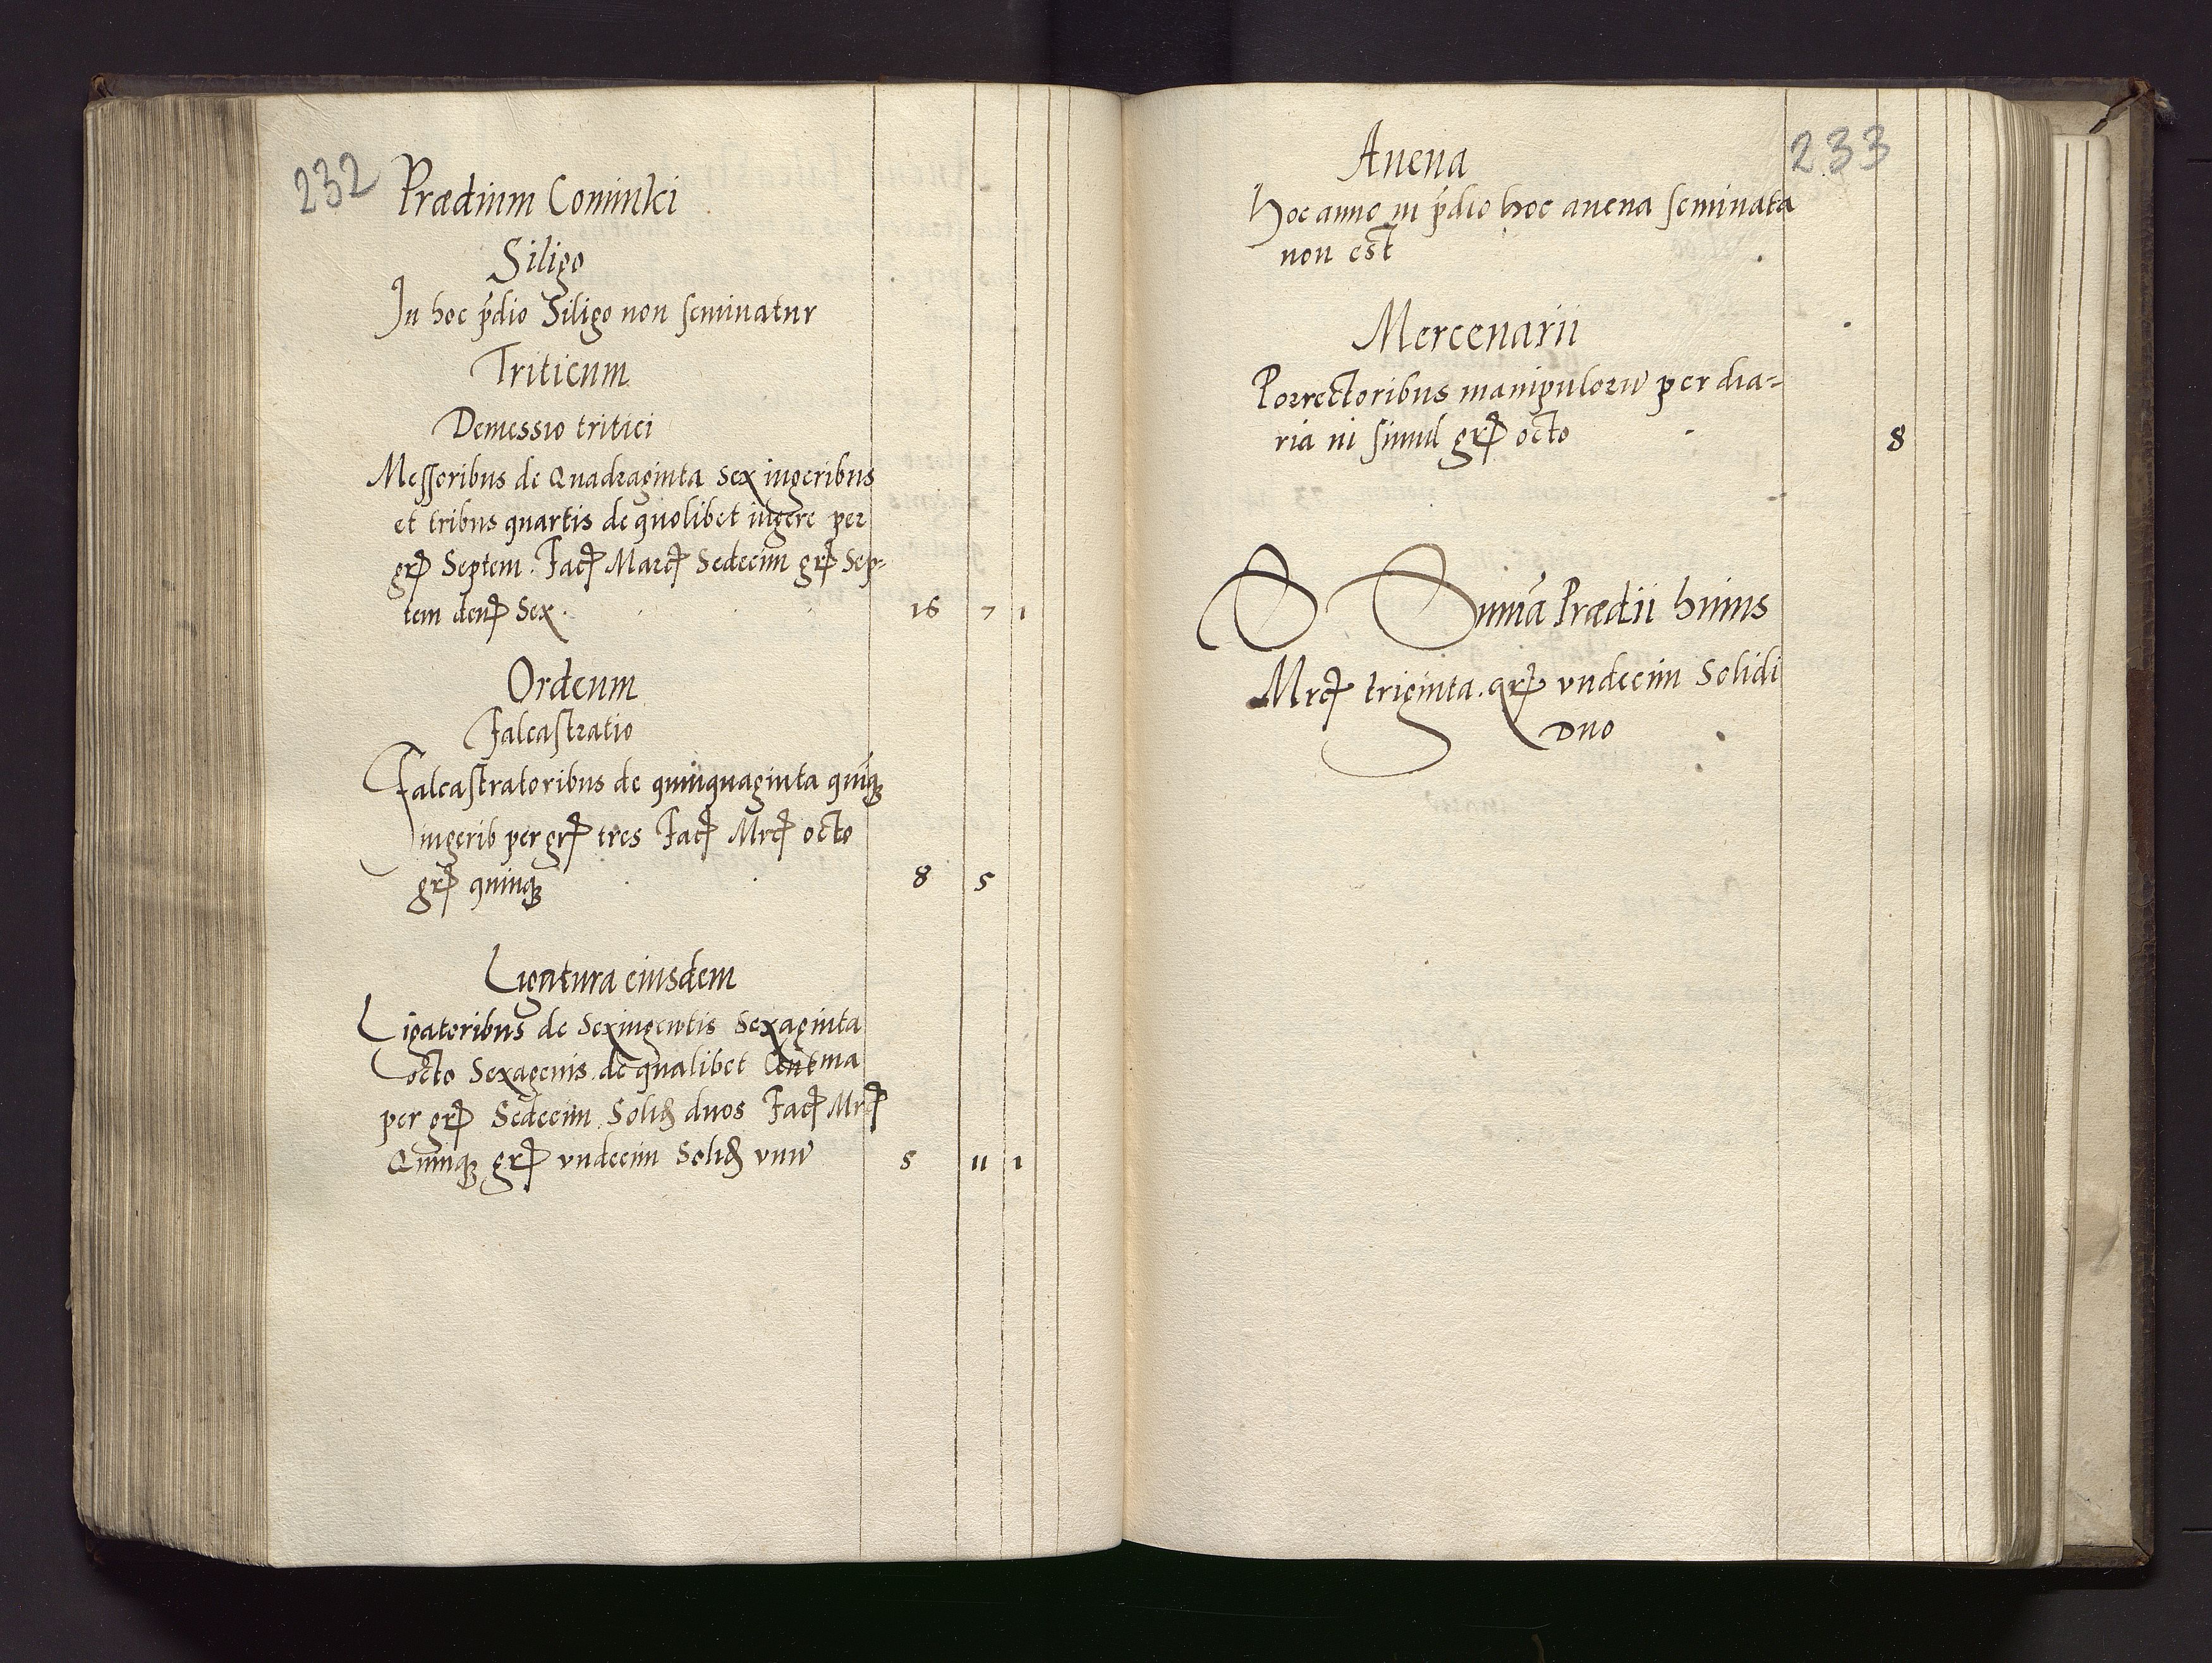 232
Prædium Cominki
Siligo
In hoc p̄dio Siligo non seminatur
Triticum
Demessio tritici
Messoribus de Quadraginta Sex iugeribus
et tribus quartis de quolibet iugere per
gr Septem. Fac Marc Sedecim gr Sep=
tem den Sex. 16 7 1
Ordeum
Falcastratio
Falcastratoribus de quinquaginta quiq
iugerib per gr tres Fac Mrc octo
gr quinq 8 5
Ligatura eiusdem
Ligatoribus de Sexingentis Sexaginta
octo Sexagenis de qualibet
per gr Sedecim Solid duos Fac Mrc
Quinq gr vndecim Solid vnū 5 11 1
233
Auena
Hoc anno in p̄dio hoc auena seminata
non est
Mercenarii
Porrectoribus manipulorū per dia=
ria in simul gr octo 8
Sum̄a Prædii huius
Mrc triginta. gr vndecim Solidi
Duo